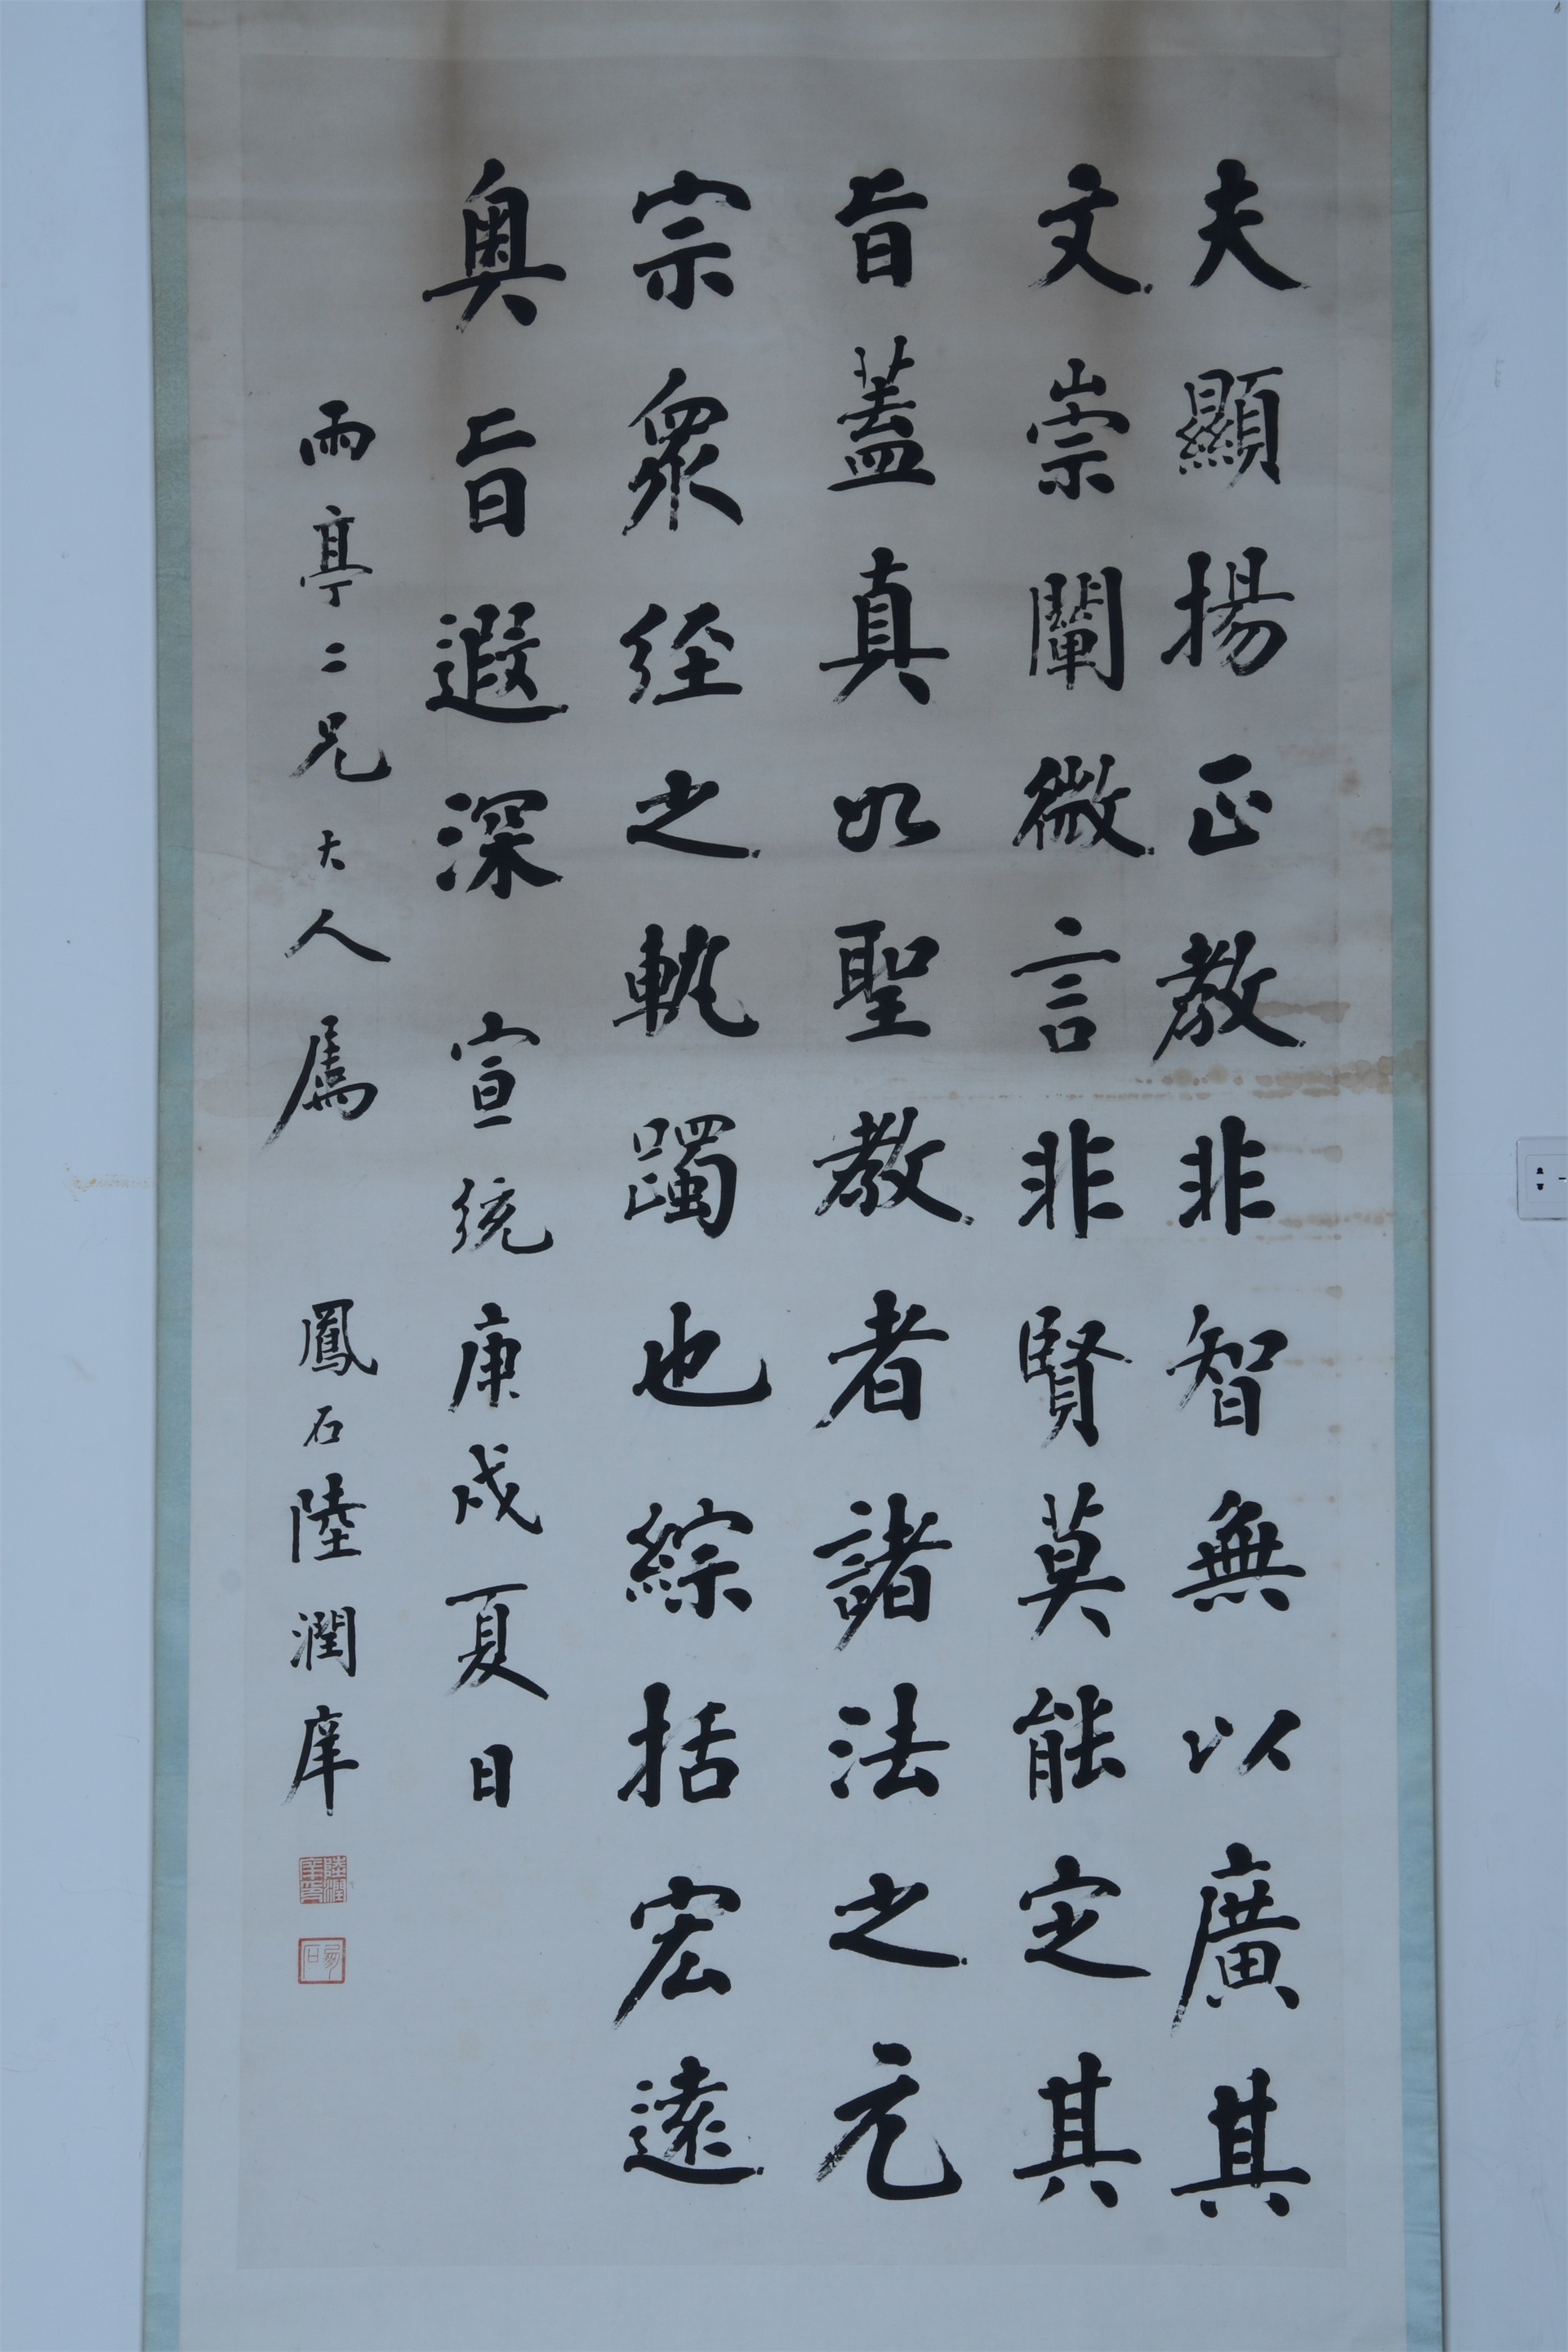 夫顯揚正教非智無以廣其
文崇闡微言非賢莫能定其
旨蓋真如聖教者諸法之元
宗眾經之軌躅也綜括宏遠
奧旨遐深 宣統庚戌夏日
雨亭二兄大人屬 鳳石陸潤庠
陸潤庠印
鳳石